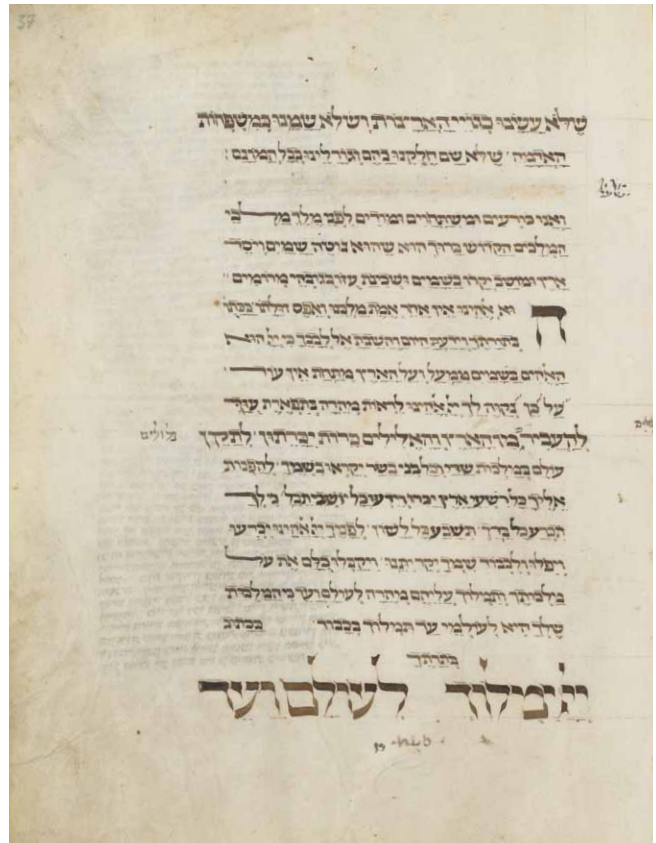 שֶׁלֹּא עָשָׂנוּ כְּגוֹיֵי הָאֲרָצוֹת וְשֶׁלֹּא שָׂמָנוּ כְּמִשְׁפְּחוֹת
הָאֲדָמָה שֶׁלֹּא שָׂם חֶלְקֵנוּ בָּהֶם וְגוֹרָלֵינוּ כְּכָל הֲמוֹנָם
וַאֲנוּ כּוֹרְעִים וּמִשְׁתַּחֲוִים וּמוֹדִים לִפְנֵי מֶלֶךְ מַלְכֵי
הַמְּלָכִים הַקָּדוֹשׁ בָּרוּךְ הוּא שֶׁהוּא נוֹטֶה שָׁמַיִם וְיֹסֵד
אֶרֶץ וּמוֹשַׁב יְקָרוֹ בַּשָּׁמַיִם וּשְׁכִינַת עֻזּוֹ בְּגָבְהֵי מְרוֹמִים
הוּא אֱלֹהֵינוּ אֵין אַחֵר אֱמֶת מַלְכֵּנוּ וְאֶפֶס זוּלָתוֹ כַּכָּתוּב
בְּתוֹרָתֶךָ וְיָדַעְתָּ הַיּוֹם וַהֲשֵׁבֹתָ אֶל לְבָבֶךָ כִּי יְיָ הוּא
הָאֱלֹהִים בַּשָּׁמַיִם מִמַּעַל וְעַל הָאָרֶץ מִתָּחַת אֵין עוֹד
עַל כֵּן נְקַוֶּה לְךָ יְיָ אֱלֹהֵינוּ לִרְאוֹת מְהֵרָה בְּתִפְאֶרֶת עֻזֶּךָ
לְהַעֲבִיר מִן הָאָרֶץ וְהָאֱלִילִים כָּרוֹת יִכָּרֵתוּן לְתַקֵּן
עוֹלָם בְּמַלְכוּת שַׁדַּי וְכָל בְּנֵי בָשָׂר יִקְרְאוּ בִשְׁמֶךָ לְהַפְנוֹת
אֵלֶיךָ כָּל רִשְׁעֵי אָרֶץ יַכִּירוּ וְיֵדְעוּ כָּל יוֹשְׁבֵי תֵבֵל כִּי לְךָ
תִכְרַע כָּל בֶּרֶךְ תִּשָּׁבַע כָּל לָשׁוֹן לְפָנֶיךָ יְיָ אֱלֹהֵינוּ יִכְרְעוּ
וְיִפֹּלוּ וְלִכְבוֹד שִׁמְךָ יְקָר יִתֵּנוּ וִיקַבְּלוּ כֻלָּם אֶת עֹל
מַלְכוּתֶךָ וְתִמְלוֹךְ עֲלֵיהֶם מְהֵרָה לְעוֹלָם וָעֶד כִּי הַמַּלְכוּת
שֶׁלְּךָ הִיא לְעוֹלְמֵי עַד תִּמְלוֹךְ בְּכָבוֹד כַּכָּתוּב
בְּתוֹרָתֶךָ
יְיָ יִמְלוֹךְ לְעוֹלָם וָעֶד